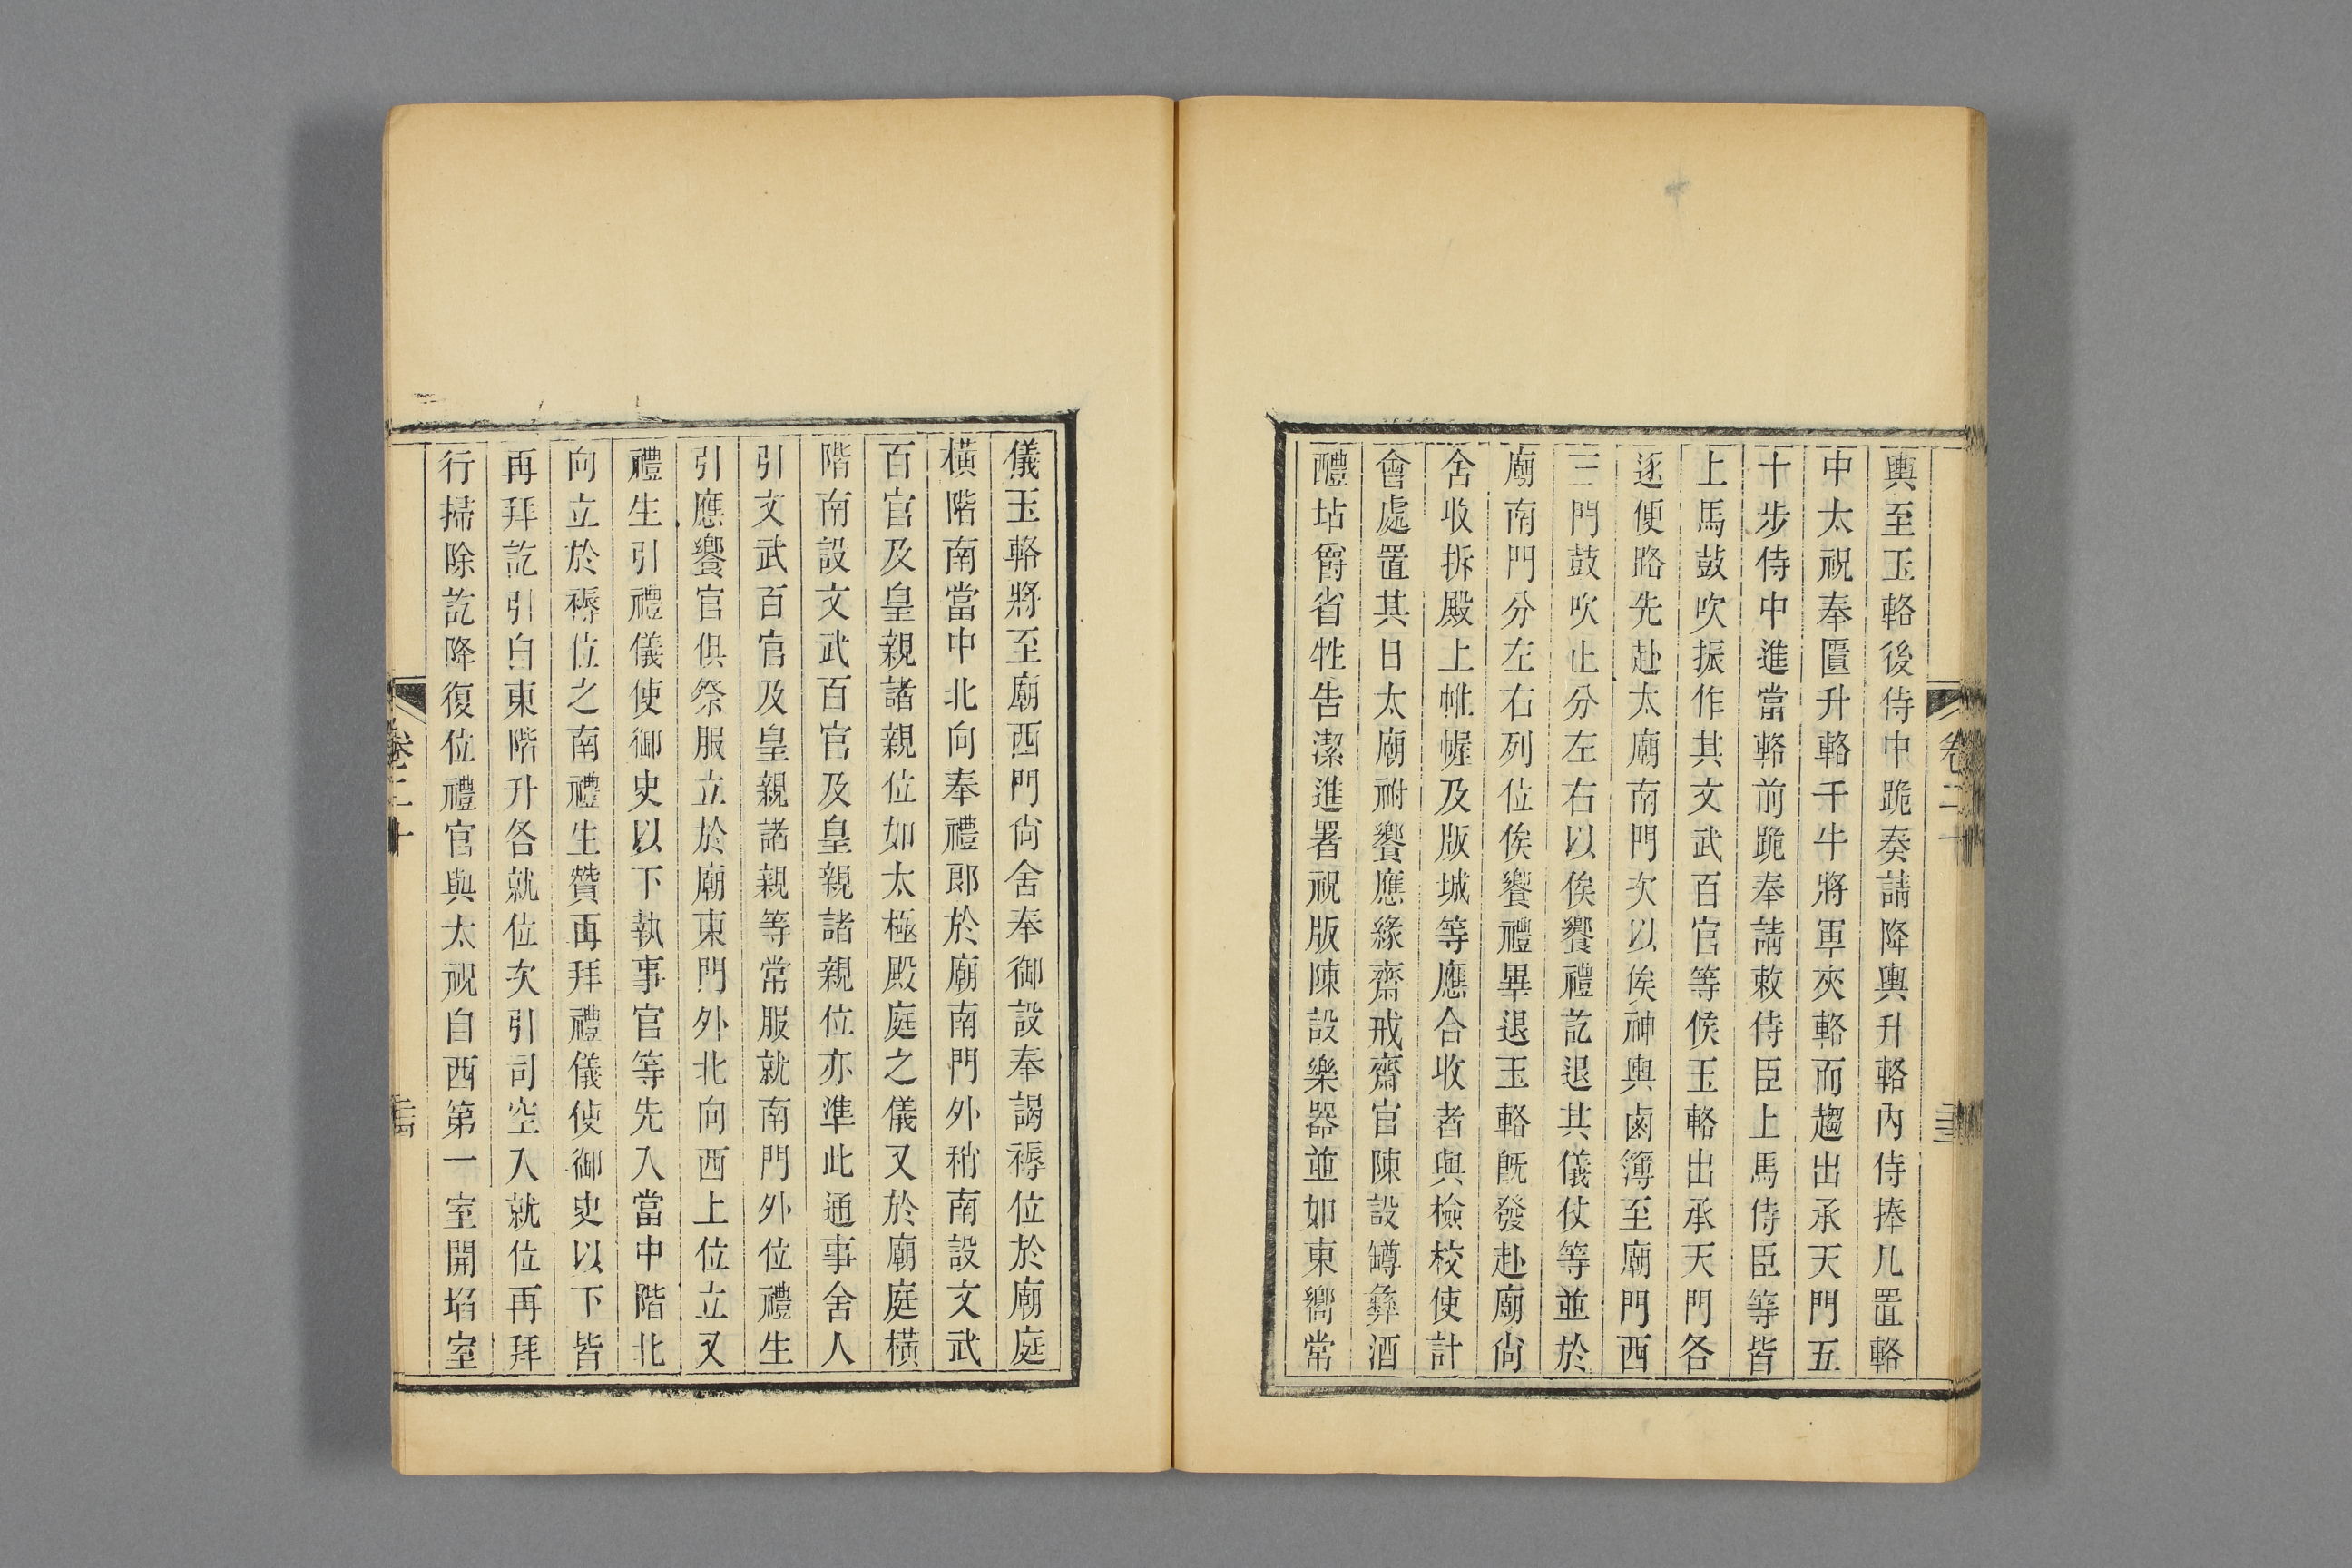 輿至玉輅後侍中跪奏請降輿升輅內侍捧几置輅
中太祝奉匱升輅千牛將軍夾輅而趨出承天門五
十步侍中進當輅前跪奉請敕侍臣上馬侍臣等皆
上馬鼓吹振作其文武百官等候玉輅出承天門各
逐便路先赴太廟南門次以俟神輿鹵簿至廟門西
三門鼓吹止分左右以俟饗禮訖退其儀仗等並於
廟南門分左右列位俟饗禮畢退玉輅旣發赴廟尙
舍收拆殿上帷幄及版城等應合收者與檢校使計
會處置其日太廟祔饗應緣齋戒齋官陳設罇彝酒
醴坫爵省牲告潔進署祝版陳設樂器並如東嚮常
儀玉輅將至廟西門尙舍奉御設奉謁褥位於廟庭
橫階南當中北向奉禮郎於廟南門外稍南設文武
百官及皇親諸親位如太極殿庭之儀又於廟庭橫
階南設文武百官及皇親諸親位亦準此通事舍人
引文武百官及皇親諸親等常服就南門外位禮生
引應饗官俱祭服立於廟東門外北向西上位立又
禮生引禮儀使御史以下執事官等先入當中階北
向立於褥位之南禮生贊再拜禮儀使御史以下皆
再拜訖引自東階升各就位次引司空入就位再拜
行掃除訖降復位禮官與太祝自西第一室開埳室
卷二十